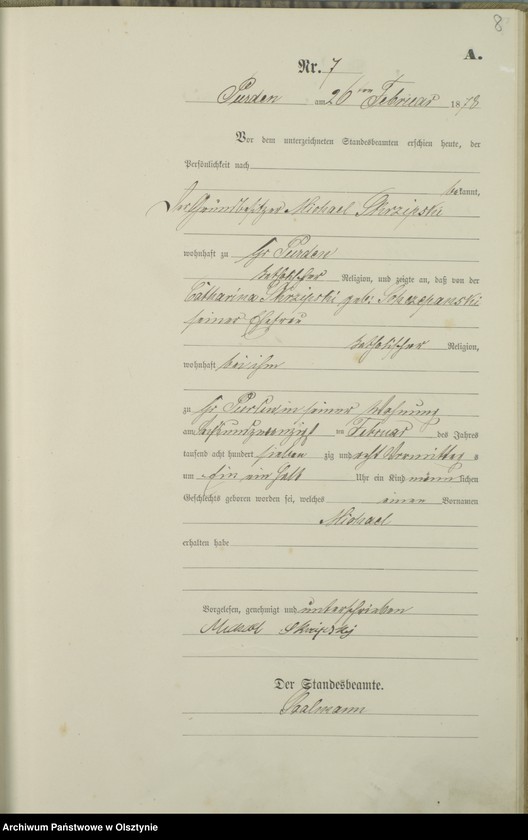 8
A.
Nr. 7
Purden am 26ten Februar 1878
Vor dem unterzeichneten Standesbeamten erschien heute, der
Persönlichkeit nach
bekannt,
Der Grundbesitzer Michael Skrzipski
wohnhaft zu Gr Purden
katholischer Religion, und zeigte an, daß von der
Catharina Skrzipski geb: Sczepanski
seiner Ehefrau
katholischer Religion,
wohnhaft bei ihm
zu Gr Purden in seiner Wohnung
am Februar des Jahres
tausend acht hundert sieben zig und acht Vormittags
um ein halb Uhr ein Kind männlichen
Geschlechts geboren worden sei, welches einen Vornamen
Michael
erhalten habe
Vorgelesen, genehmigt und unterschrieben
Der Standesbeamte.
Saalmann
Archiwum Państwowe w Olsztynie